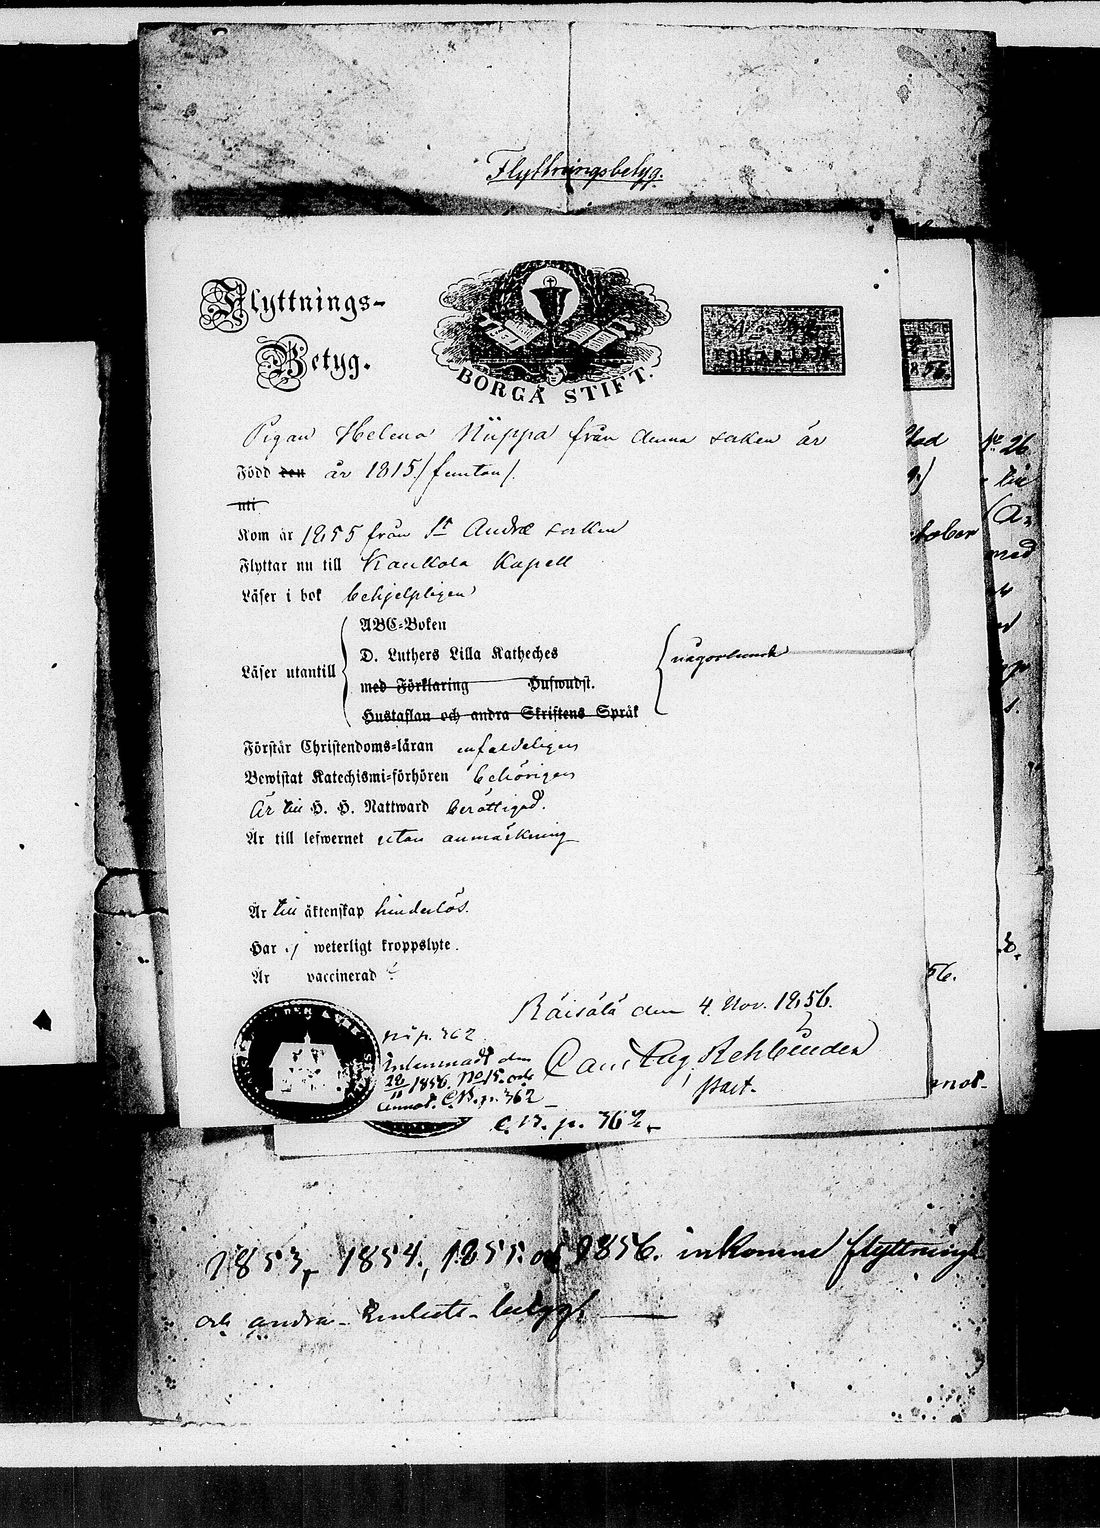 Flyttningsbetyg.
Flyttnings-
Betyg.
BORGÅ STIFT.
Pigan Helena Nuppa från denna socken är
Född den år 1815/femton/.
uti
Kom år 1855 från St Andræ socken
Flyttar nu till Kaukola Kapell
Läser i bok behjelpligen
Läser utantill
ABC-Boken
D. Luthers Lilla Katheches
med Förklaring Huswudst.
Hustaflan och andra Skriftens Språk
någorlunda
Förstår Christendoms-läran enfaldeligen
Bewistat Katechismi-förhören behörigen
Är till H. H. Nattward berättigad.
Är till lefwernet utan anmärkning
Är till äktenskap hinderlös.
Har ej weterligt kroppslyte.
Är vaccinerad
Räisälä den 4. Nov. 1856.
p. 362
Inlemnadt den
28/11 1856. No 15. och
Annot. C.B. p. 362
Past.
C.B. p. 362
1853, 1854, 1855. och 1856. inkomne flyttnings
och andra betyg
No 26
tober
med
56.